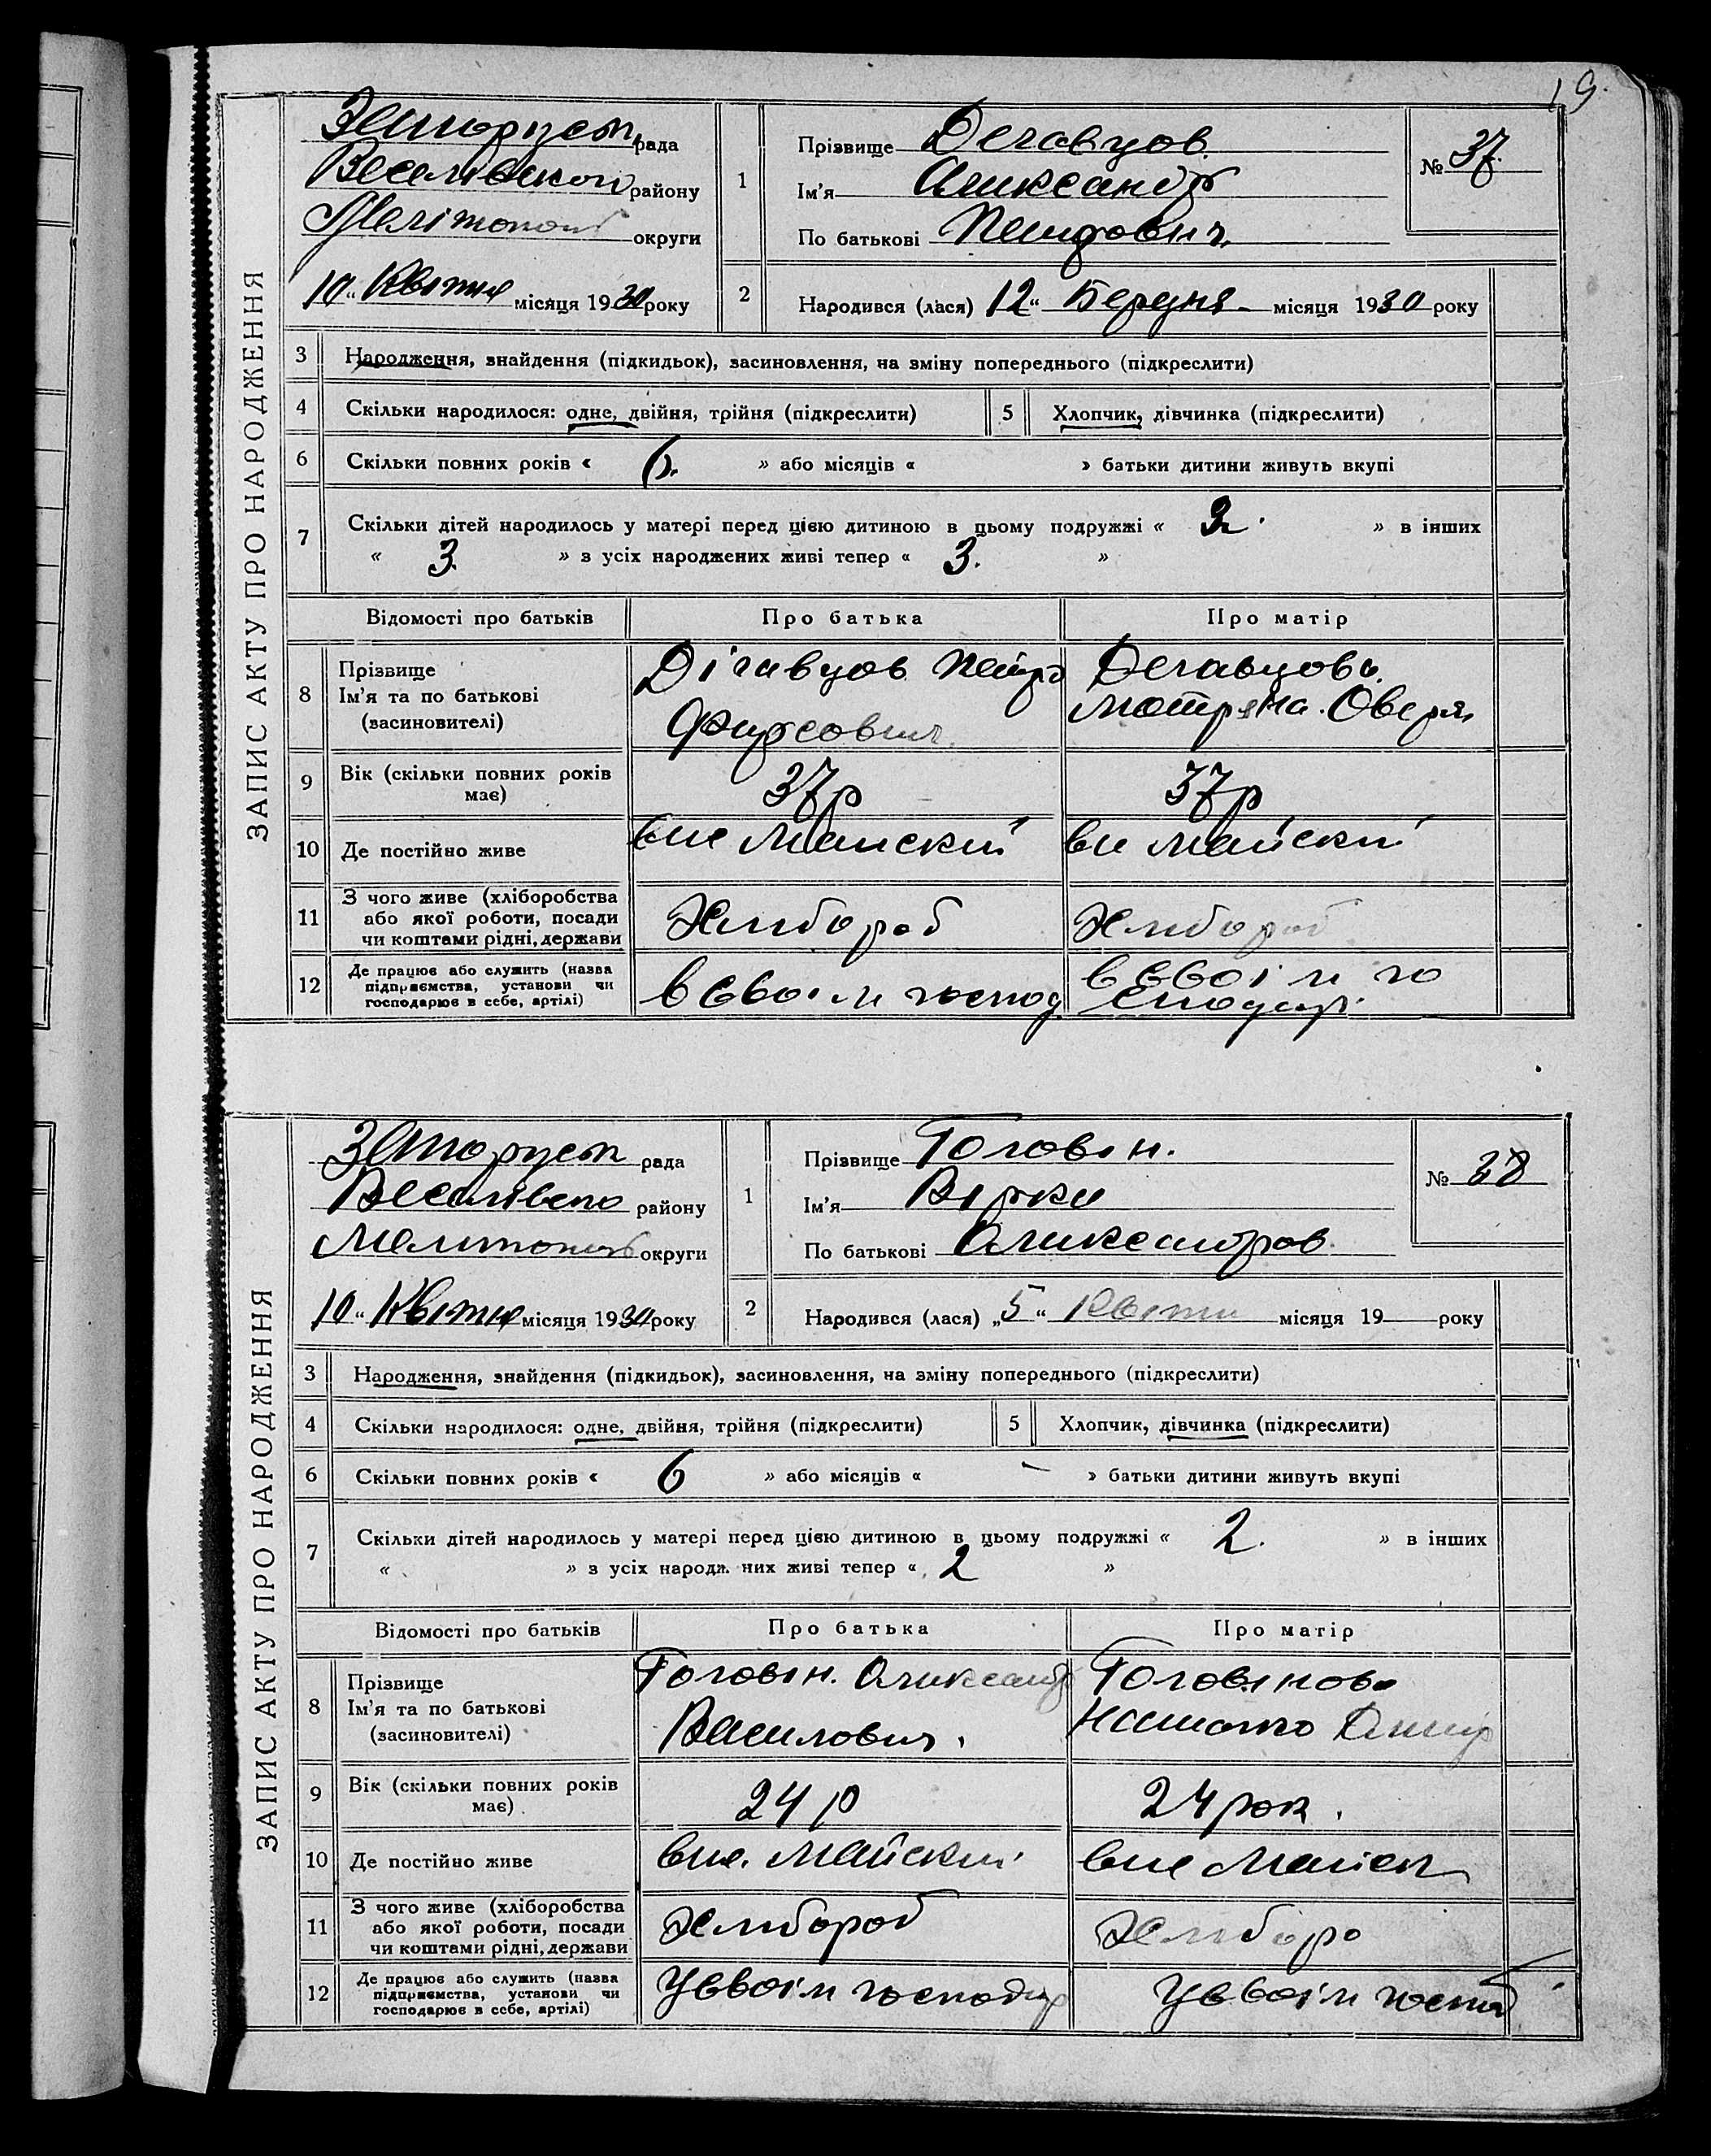 19.
ЗАПИС АКТУ ПРО НАРОДЖЕННЯ
рада
району
округи
10 „ Квітня місяця 1930 року
1
Прізвище Дегавцов.
Ім'я Александр
По батькові Петрович.
№ 37.
2
Народився (лася) 12 „ Березня місяця 1930 року
3 Народження, знайдення (підкидьок), засиновлення, на зміну попереднього (підкреслити)
4 Скільки народилося: одне, двійня, трійня (підкреслити) 5 Хлопчик, дівчинка (підкреслити)
6 Скільки повних років « » або місяців « » батьки дитини живуть вкупі
7 Скільки дітей народилось у матері перед цією дитиною в цьому подружжі « 2. » в інших
« 3. » з усіх народжених живі тепер « 3. »
Відомості про батьків Про батька Про матір
8 Прізвище
Ім'я та по батькові
(засиновителі)
Дігавцов Петро
Дегавцова.
Мотряна. Оверян
9 Вік (скільки повних років
має)
37 р 37 р
10 Де постійно живе Майский Майский
11 З чого живе (хліборобства
або якої роботи, посади
чи коштами рідні, держави
Хлибороб Хлибороб
12 Де працює або служить (назва
підприємства, установи чи
господарює в себе, артілі)
в євоім господ.
в євоім го
сподар.
ЗАПИС АКТУ ПРО НАРОДЖЕННЯ
рада
району
округи
10 „ Квітня місяця 1930 року
1
Прізвище Головін.
Ім'я
По батькові Александров.
№ 38
2
Народився (лася) „ 5 „ Квітня місяця 19 року
3 Народження, знайдення (підкидьок), засиновлення, на зміну попереднього (підкреслити)
4 Скільки народилося: одне, двійня, трійня (підкреслити) 5 Хлопчик, дівчинка (підкреслити)
6 Скільки повних років « 6 » або місяців « - » батьки дитини живуть вкупі
7 Скільки дітей народилось у матері перед цією дитиною в цьому подружжі « 2. » в інших
« » з усіх народж. них живі тепер « 2 »
Відомості про батьків Про батька Про матір
8 Прізвище
Ім'я та по батькові
(засиновителі)
Головін. Александр
Василович.
Головінова
9 Вік (скільки повних років
має)
24 р 24 рок.
10 Де постійно живе вис. Майский вис Майск
11 З чого живе (хліборобства
або якої роботи, посади
чи коштами рідні, держави
Хлибороб Хлиборо
12 Де працює або служить (назва
підприємства, установи чи
господарює в себе, артілі)
У ввоім господар У ввоім